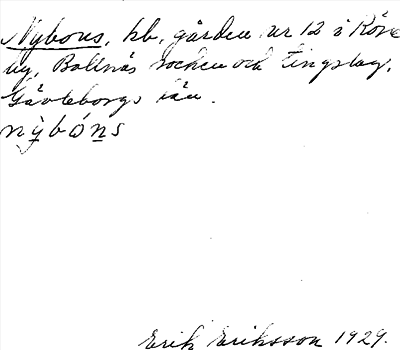 Nybons, hb, gården nr 12 i Röste
by, Bollnäs socken och tingslag.
Gävleborgs län.
nỳbóns
Erik Eriksson 1929.